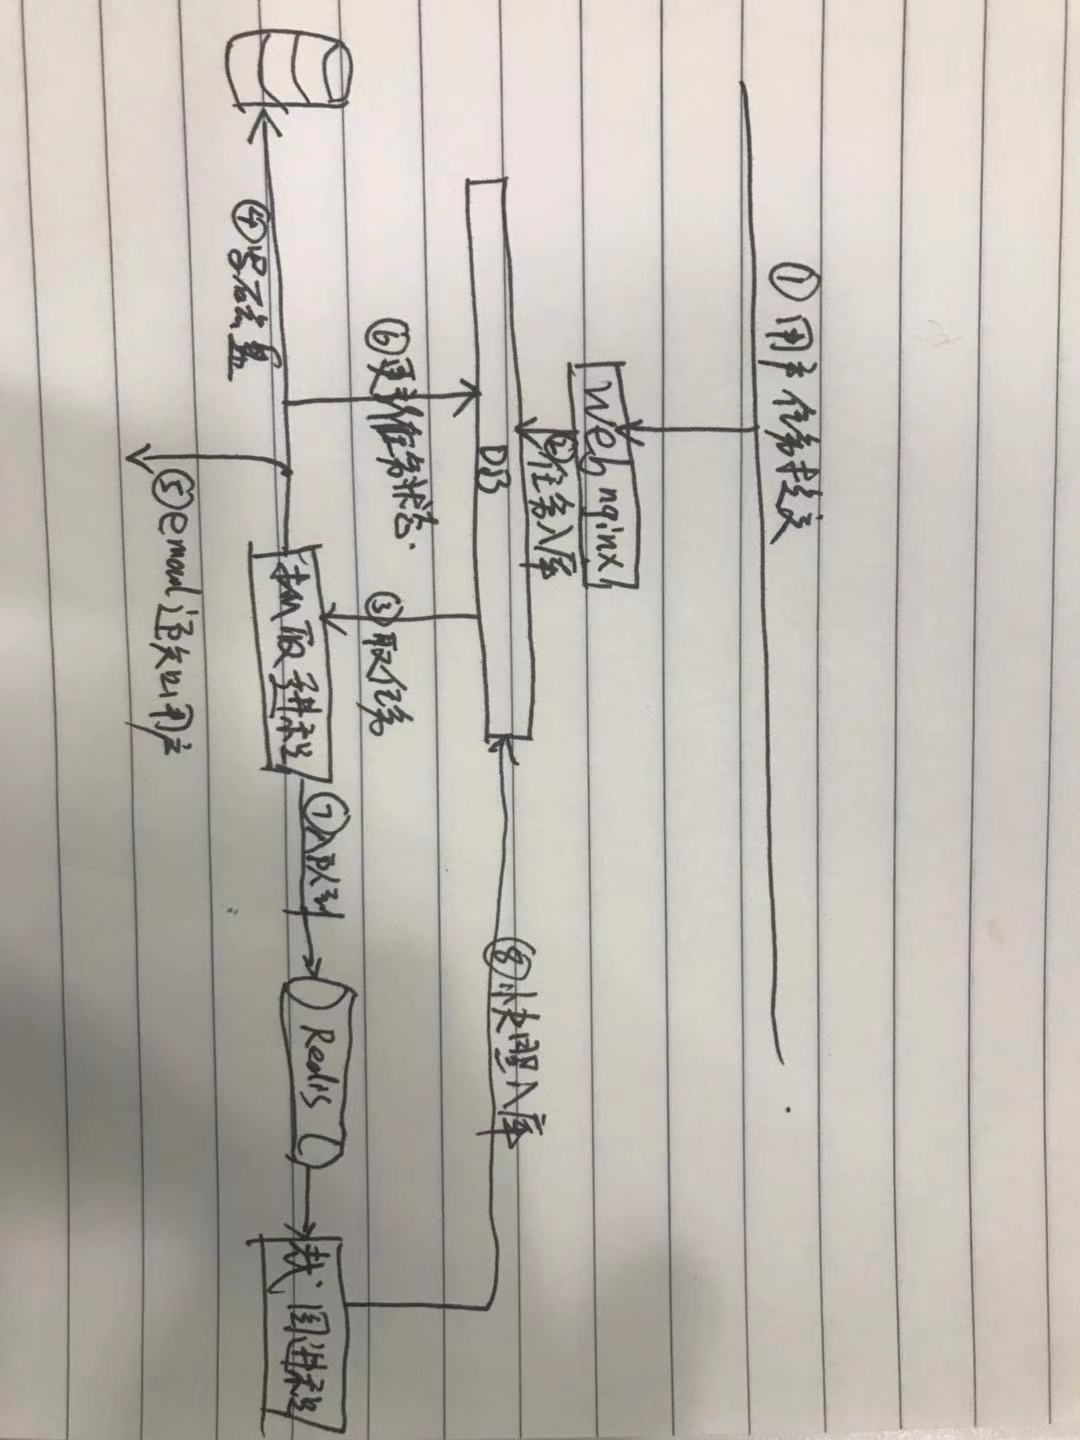 ①用户任务提交
Web nginx
②任务入库
DB
⑧快照入库
⑥更新任务状态
③取任务
抓取进程
⑦入队列
Redis
截图进程
④写磁盘
⑤email通知用户